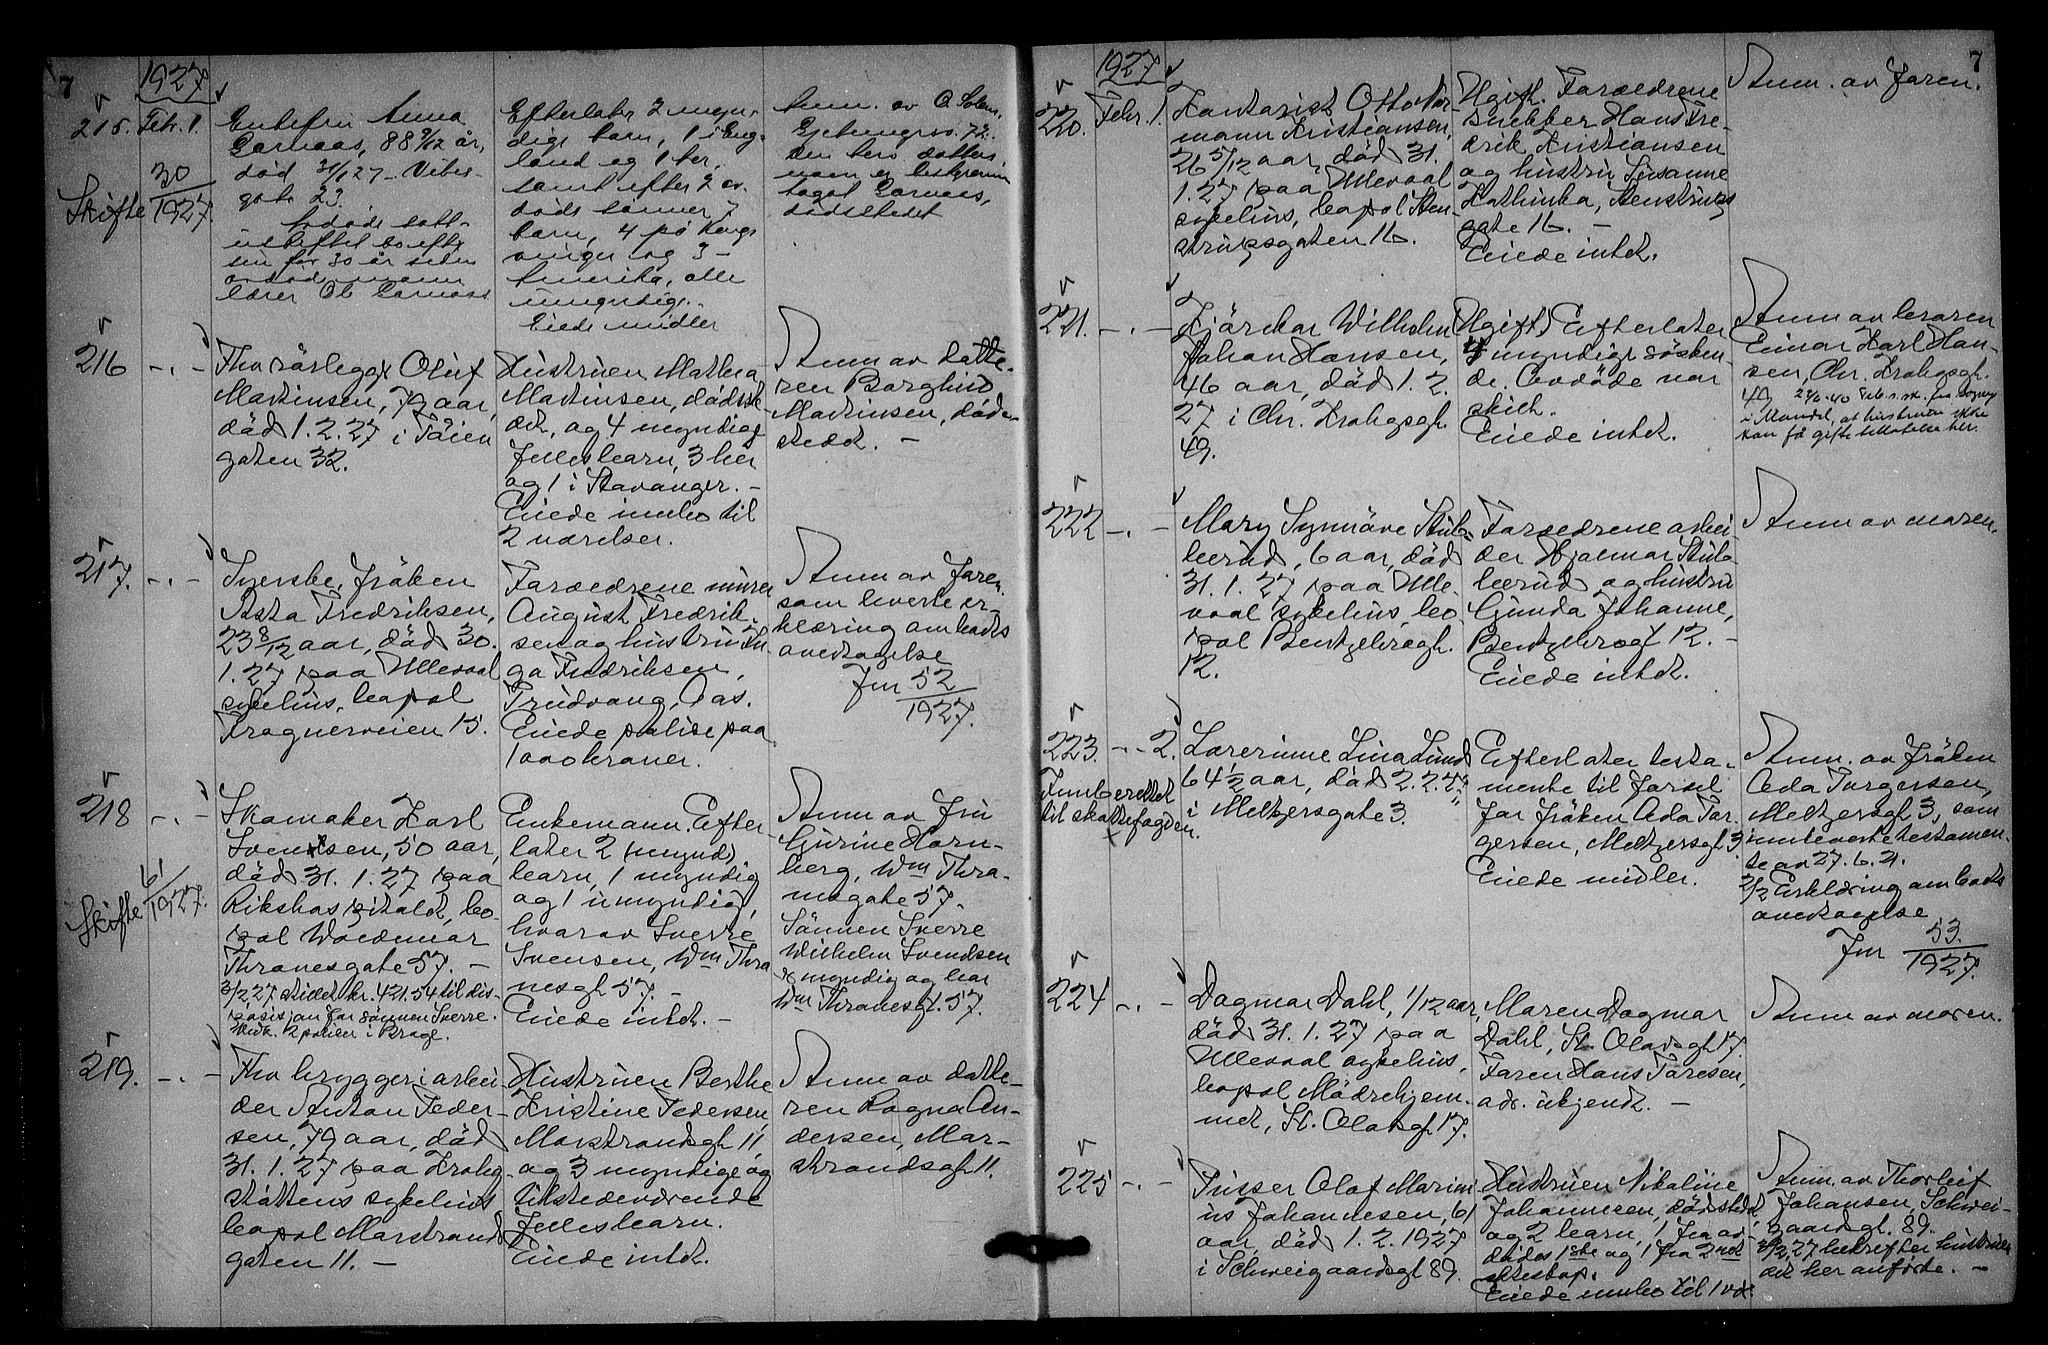 7
1927
215. Febr. 1.
Skifte 30/1927.
Enkefru Anna
Garnaas, 88 9/12 år,
død 31/1 27 Vibes
gate 23.
Avdøde satt
i uskiftet bo efter
sin for 30 år siden
avdøde mann
lærer Ol. Garnaas
Efterlater 2 myn-
dige barn, 1 i Eng-
land og 1 her,
samt efter 2 av-
døde sønner 7
barn, 4 på Kongs
vinger og 3
Amerika, alle
umyndige.
Eiede midler
Anm. av O.
den herv. datters
navn er
Garnaas,
dødsstedet
216 -.-
Fhv rörlegger Oluf
Martinsen, 79 aar,
död 1.2.27 i Töien
gaten 32.
Hustruen Mathea
Martinsen, dödsste-
det, og 4 myndige
fellesbarn, 3 her
og 1 i Stavanger. -
Eiede innbo til
2 værelser.
Anm av datte-
ren Borghild
Martinsen, döds-
stedet. -
217. -.-
Syerske, fröken
Asta Fredriksen,
23 8/12 aar, död 30.
1.27 paa Ullevaal
sykehus, bopæl
Frognerveien 15.
Forældrene murer
August Fredrik-
sen og hustru In-
ga Fredriksen,
Trudvang, Aas.
Eiede polise paa
1000 kroner.
Anm av faren
som leverte er-
klæring om boets
overtagelse
Jnr 52/1927.
218 -.-
Skifte 61/1927.
Skomaker Karl
Svendsen, 50 aar,
död 31.1.27 paa
Rikshospitalet, bo-
pæl Woldemar
Thranesgate 57. -
3/2 27 stillet kr. 421.54 til dis-
posisjon for sönnen Sverre.
2 poliser i Brage.
Enkemann. Efter-
later 2 (mynd)
barn, 1 myndig
og 1 umyndig,
hvorav Sverre
Svensen, Wm Thra
nesgt 57. -
Eiede intet. -
Anm av fru
Gurine Horn-
berg, Wm Thra-
nesgate 57.
Sönnen Sverre
Wilhelm Svendsen
er myndig og bor
Wm Thranesgt. 57.
219. -.-
Fhv bryggeriarbei-
der Anton Peder-
sen, 79 aar, död
31.1.27 paa Krohg
stöttens sykehus
bopæl Marstrands
gaten 11. -
Hustruen Berthe
Kristine Pedersen,
Marstrandsgt 11,
og 3 myndige og
tilstedeværende
fellesbarn.
Eiede intet.
Anm av datte-
ren Ragna An-
dersen, Mar-
strandsgt 11.
7
1927
220. Febr. 1.
Kontorist Otto Nor
mann Kristiansen,
26 5/12 aar, död 31.
1.27 paa Ullevaal
sykehus, bopæl Sten-
strupsgaten 16.
Ugift. Forældrene
snekker Hans Fre-
drik Kristiansen
og hustru Susanne
Kathinka, Stenstrups
gate 16. -
Eiede intet.
Anm. av faren.
221. -.-
Kjörekar Wilhelm
Johan Hansen,
46 aar, död 1.2.
27 i Chr. Krohgsgt.
49.
Ugift. Efterlater
4 myndige sösken-
de. Avdöde var
skilt.
Eiede intet.
Anm av broren
Einar Karl Han-
sen, Chr. Krohgsgt.
49
i Mandal, at hustruen ikke
kan få gifte tillatelse her.
222 -.-
Mary Synnöve Stub-
berud, 6 aar, död
31.1.27 paa Ulle-
vaal sykehus, bo
pæl Bentzebrogt.
12.
Forældrene arbei-
der Hjalmar Stub-
berud og hustru
Gunda Johanne,
Bentzebrogt 12. -
Eiede intet.
Anm av moren.
223. -.- 2.
Innberettet
til skattefogden.
Lærerinne Lina Lund
64 1/2 aar, död 2.2.27
i Meltzersgate 3.
Efterlater testa-
mente til fordel
for fröken Ada Tor
gersen, Meltzersgt. 3.
Eiede midler.
Anm. av fröken
Ada Torgersen,
Meltzersgt 3, som
innleverte testamen-
te av 27.6.21.
2/2 Erklæring om boets
overtagelse
Jnr 53/1927.
224 -.-
Dagmar Dahl, 1/12 aar,
död 31.1.27 paa
Ullevaal sykehus,
bopæl Mödrehjem-
met, St. Olavsgt 17.
Maren Dagmar
Dahl, St. Olavsgt 17.
Faren Hans Toresen,
adr. ukjendt. -
Anm av moren.
225 -.-
Pusser Olaf Marini
us Johannesen, 61
aar, död 1.2.1927
i Schweigaardsgt 89.
Hustruen Nikoline
Johannesen, dödsstedet,
og 2 barn, 1 fra av-
dödes 1ste og 1 fra 2net
ekteskap.
Eiede innbo til 1 vær.
Anm. av Thorleif
Johansen, Schwei-
gaardsgt. 89.
27 bekrefter hustruen
det her anförte. -